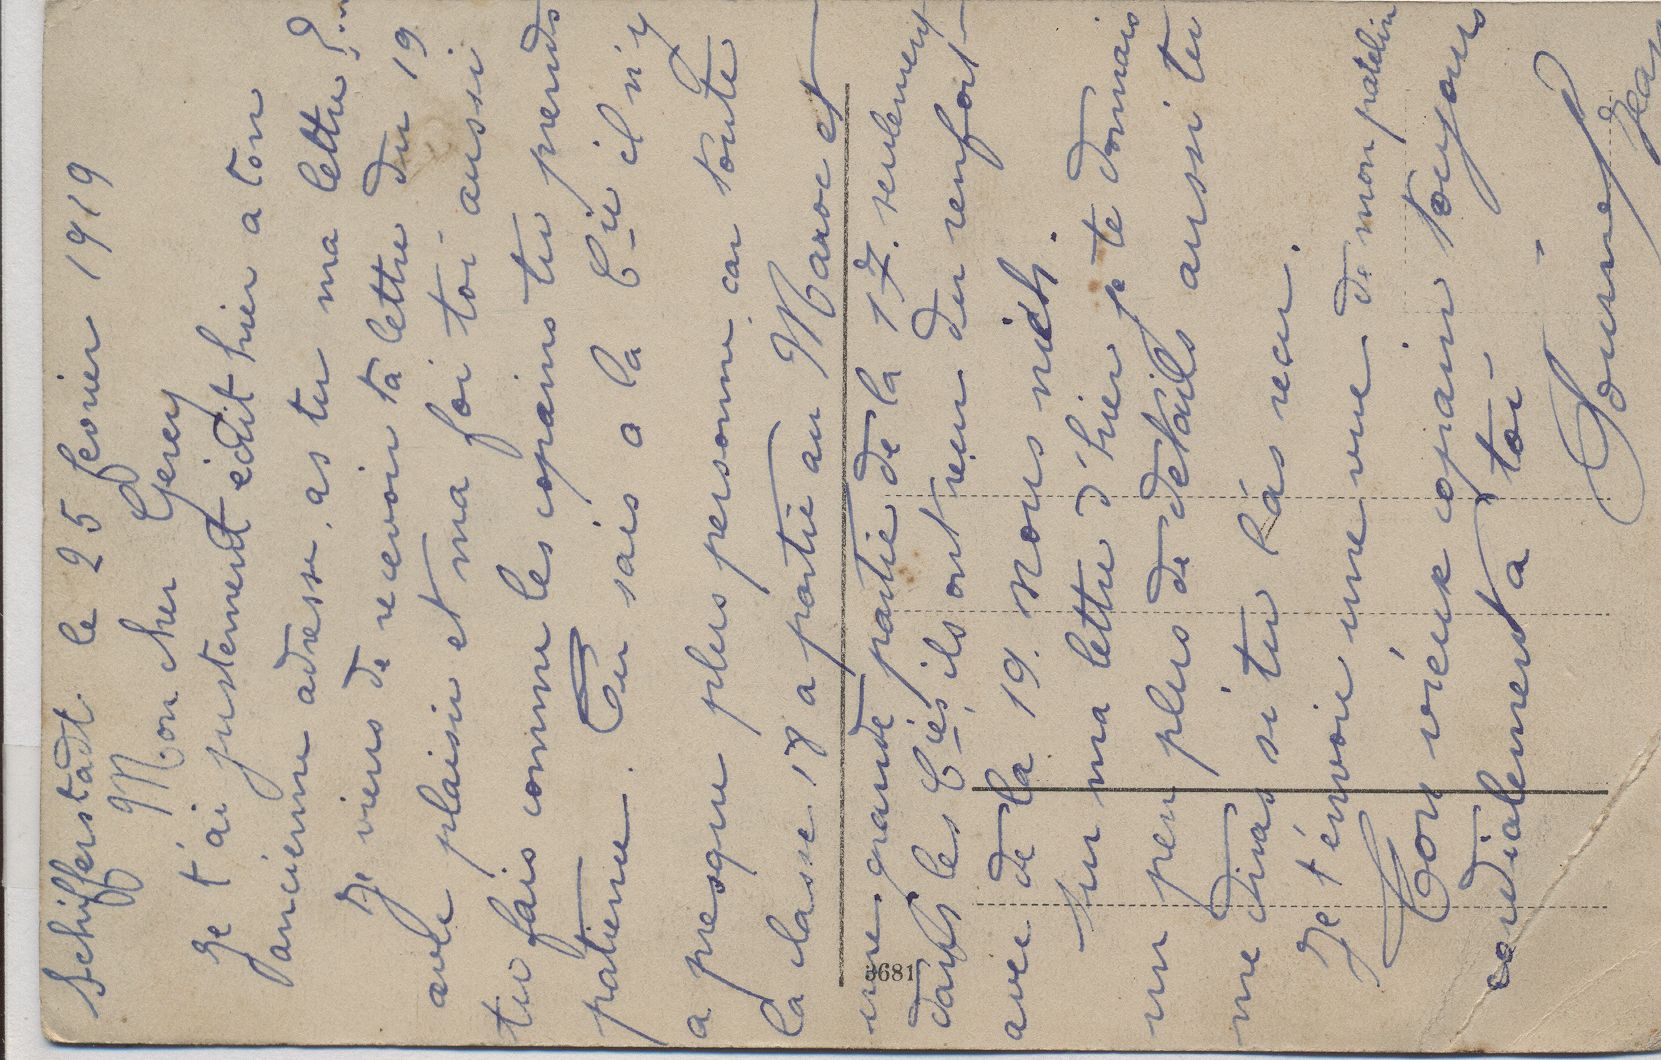 Schifferstadt le 25 fevrier 1919
Mon cher Gerey
Je t'ai justement écrit hier a ton
ancienne adresse, as tu ma lettre?..
Je viens de recevoir ta lettre du 19
avec plaisir et ma foi toi aussi
tu fais comme les copains tu prends
patience. Tu sais a la Cie il n'y
a presque plus personne car toute
la classe 18 a partie au Maroc et
une grande partie de la 17. seulement
dans les Cies, ils ont reçu du renfort
avec de la 19. Nous
Sur ma lettre d'hier je te donnais
un peu plus de details aussi tu
me diras si tu l'as recu.
Je t'envoie une vue de mon patelin
Ton vieux copain toujours
cordialement a toi -
Jean
3681